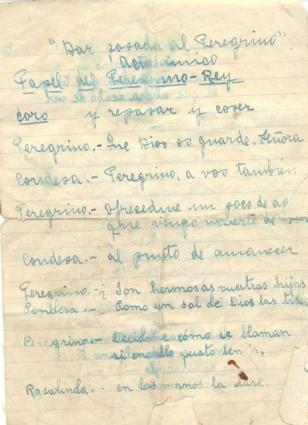 "Dar posada al Peregrino"
Acto único
Papel del Peregrino-Rey
coro y repasar y coser
Peregrino.- Que Dios os guarde, Señora
Condesa.- Peregrino, a vos también.
Peregrino.- Ofrecedme un poco de ag
que vengo muerto de
Condesa.- al punto de amanecer
Peregrino.- ¡ Son hermosas vuestras hijas
Condesa.- Como un sol de Dios las tres
Peregrino.- Decidme cómo se llaman
si en ello gusto
Rosalinda.- en las manos la